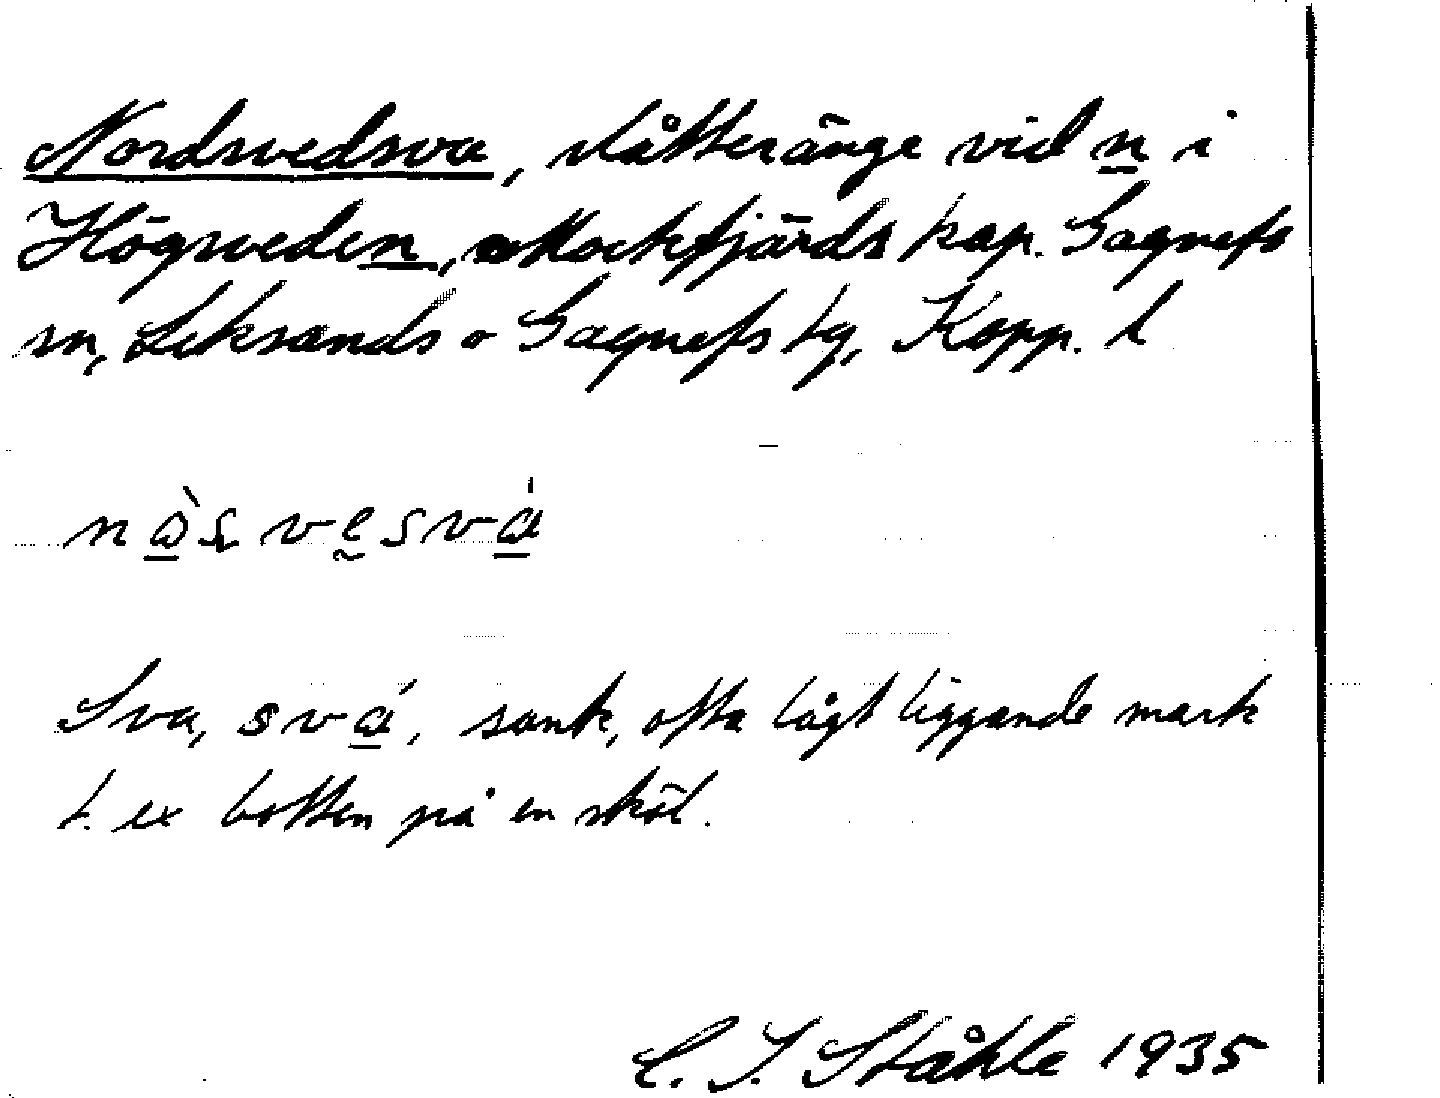 Nordsvedsva, slåtteränge vid n i
Högsveden, Mockfjärds kap. Gagnefs
sn, Leksands o Gagnefs tg, Kopp. l
nà̱s ve̱sva̱̍
Sva, sva̱̍, sank, ofta lågt liggande mark
t. ex botten på en sköl.
C. I. Ståhle 1935